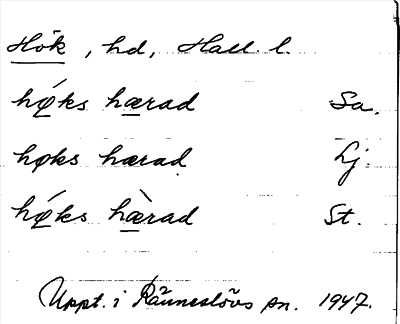 Hök, hd, Hall. l.
hǿks hærad Sa.
høks hærad Lj.
hǿks hæ̀rad St.
Uppt. i Ränneslövs sn. 1947.